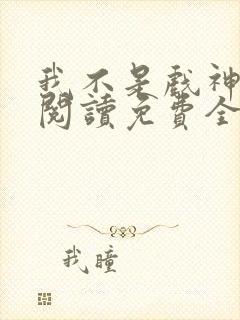 我不是戲神
閱讀免費全
我瞳